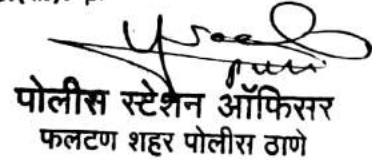 पोलीस स्टेशन ऑफिसर
फलटण शहर पोलीस ठाणे